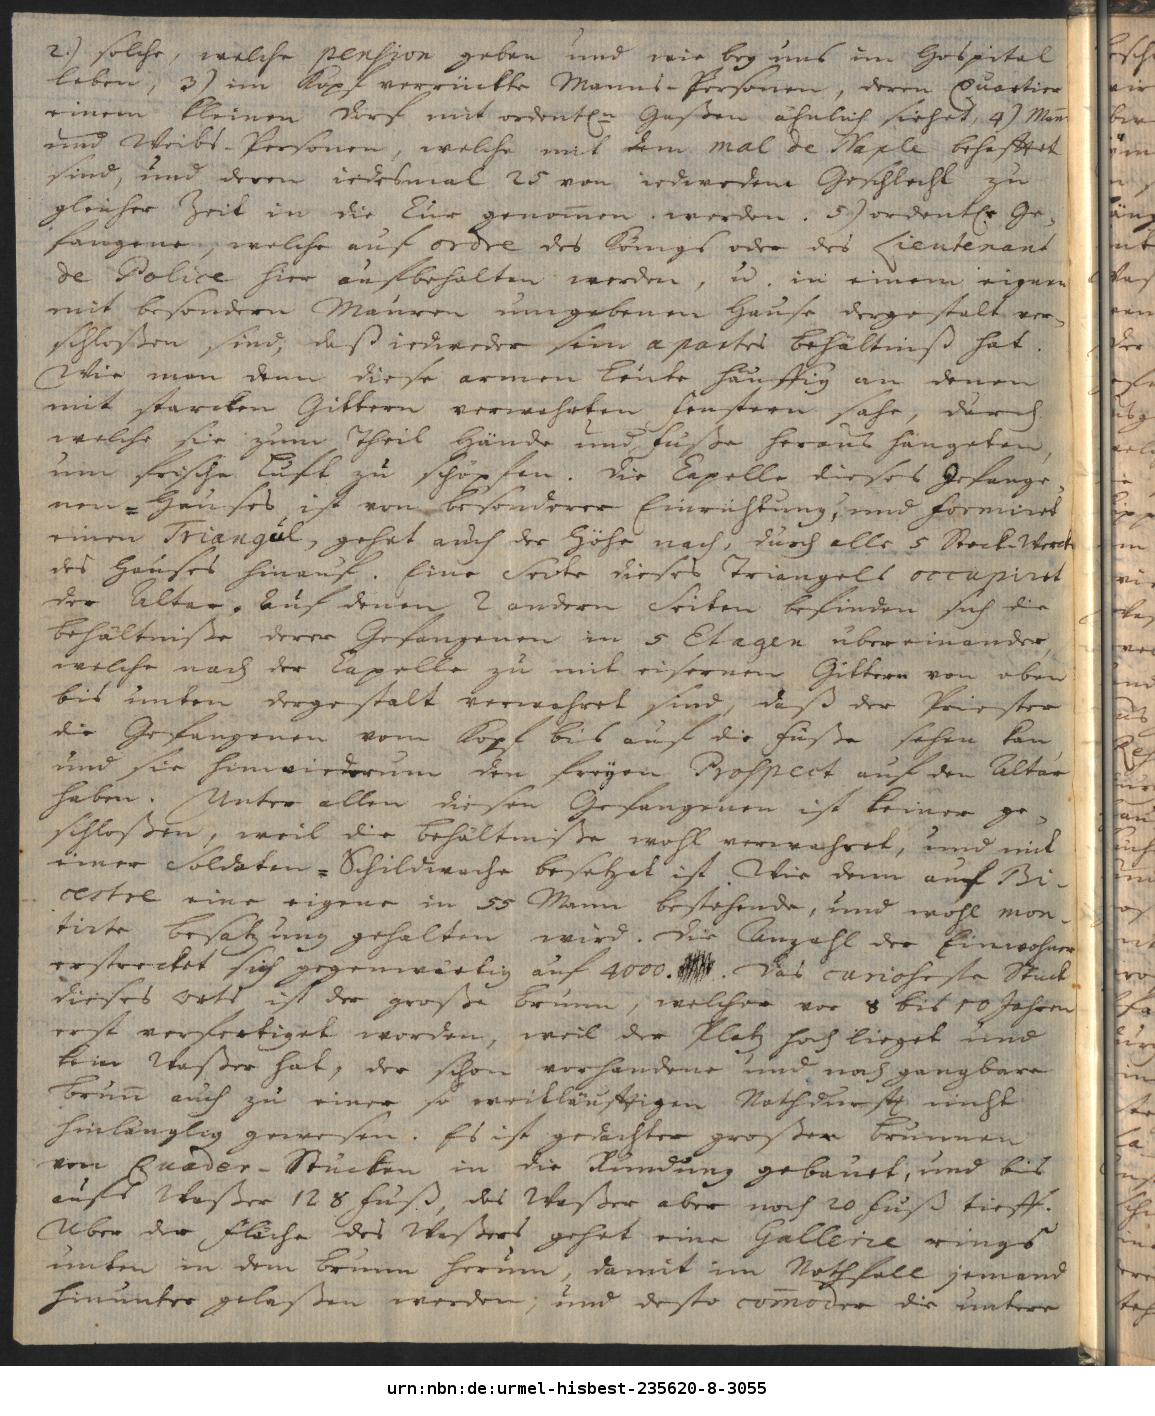 2.) solche, welche pension geben und wie bey uns im Hospital
leben, 3) im Kopf verrückte Manns-Personen, deren Quartier
einem kleinen Dorf mit ordentl. Gaßen ähnlich siehet, 4) Mann
und Weibs-Personen, welche mit dem mal de Naple behafftet
sind, und deren iedesmal 25 von iedwedem Geschlecht zu
gleicher Zeit in die Cur genom̅en werden. 5) ordentl. Ge-
fangene, welche auf ordre des Königs oder des Lieutenant
de Police hier aufbehalten werden, u. in einem eignen
mit besondern Mauren umgebenen Hause dergestalt ver-
schloßen sind, daß iedweder sein apartes Behältniß hat.
Wie man denn diese armen Leute häuffig an denen
mit starcken Gittern verwahrten Fenstern sahe, durch
welche sie zum Theil Hände und Fuße heraus hangeten,
um frische Luft zu schöpfen. Die Capelle dieses Gefange-
nen=Hauses ist von besonderer Einrichtung, und formiret
einen Triangul, gehet auch der Höhe nach, durch alle 5 Stock-Werck
des Hauses hinauf. Eine Seite dieses Triangels occupiret
der Altar. Auf denen 2 andern Seiten befinden sich die
Behältniße derer Gefangenen in 5 Etagen übereinander,
welche nach der Capelle zu mit eisernen Gittern von oben
bis unten dergestalt verwahret sind, daß der Priester
die Gefangenen vom Kopf bis auf die Füße sehen kan,
und sie hinwiederum den freyen Prospect auf den Altar
haben. Unter allen diesen Gefangenen ist keiner ge-
schloßen, weil die Behältniße wohl verwahret, und mit
einer Soldaten=Schildwache besetzet ist. Wie denn auf Bi-
cestre eine eigene in 55 Mann bestehende, und wohl mon-
tirte Besatzung gehalten wird. Die Anzahl der Einwohner
erstrecket sich gegenwärtig auf 4000. Das curioseste Stück
dieses Orts ist der große Brunn, welcher vor 8 bis 10 Jahren
erst verfertiget worden, weil der Platz hoch lieget und
kein Waßer hat, der schon vorhandene und noch gangbare
Brun̅ auch zu einer so weitläufftigen Nothdurfft nicht
hinlänglig gewesen. Es ist gedachter großer Brunnen
von Quader-Stücken in die Rundung gebauet, und bis
aufs Waßer 128 Fuß, das Waßer aber noch 20 Fuß tieff.
Uber der Fläche des Waßers gehet eine Gallerie rings
unten in dem Brunn herum, damit im Nothfall jemand
hinunter gelaßen werden, und desto com̅oder die untere
urn:nbn:de:urmel-hisbest-235620-8-3055